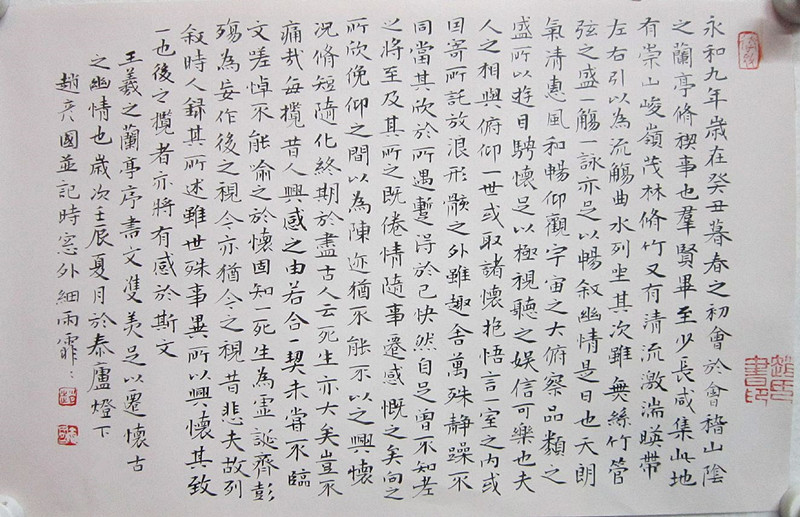 永和九年歲在癸丑暮春之初會於會稽山陰
之蘭亭脩禊事也羣賢畢至少長咸集此地
有崇山峻嶺茂林脩竹又有清流激湍暎帶
左右引以為流觴曲水列坐其次雖無絲竹管
弦之盛一觴一詠亦足以暢敘幽情是日也天朗
氣清惠風和暢仰觀宇宙之大俯察品類之
盛所以遊目騁懷足以極視聽之娛信可樂也夫
人之相與俯仰一世或取諸懷抱悟言一室之內或
因寄所託放浪形骸之外雖趣舍萬殊靜躁不
同當其欣於所遇暫得於己快然自足曾不知老
之將至及其所之既倦情隨事遷感慨之矣向之
所欣俛仰之間以為陳迹猶不能不以之興懷
況脩短隨化終期於盡古人云死生亦大矣豈不
痛哉每攬昔人興感之由若合一契未嘗不臨
文嗟悼不能喻之於懷固知一死生為虛誕齊彭
殤為妄作後之視今亦猶今之視昔悲夫故列
敘時人錄其所述雖世殊事異所以興懷其致
一也後之攬者亦將有感於斯文
王羲之蘭亭序書文雙美足以遷懷古
之幽情也歲次壬辰夏月於泰廬燈下
趙彥國並記時窗外細雨霏〻